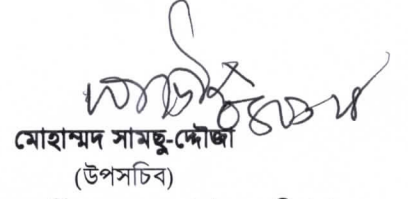 মোহাম্মদ সামছু-দ্দৌজা
(উপসচিব)